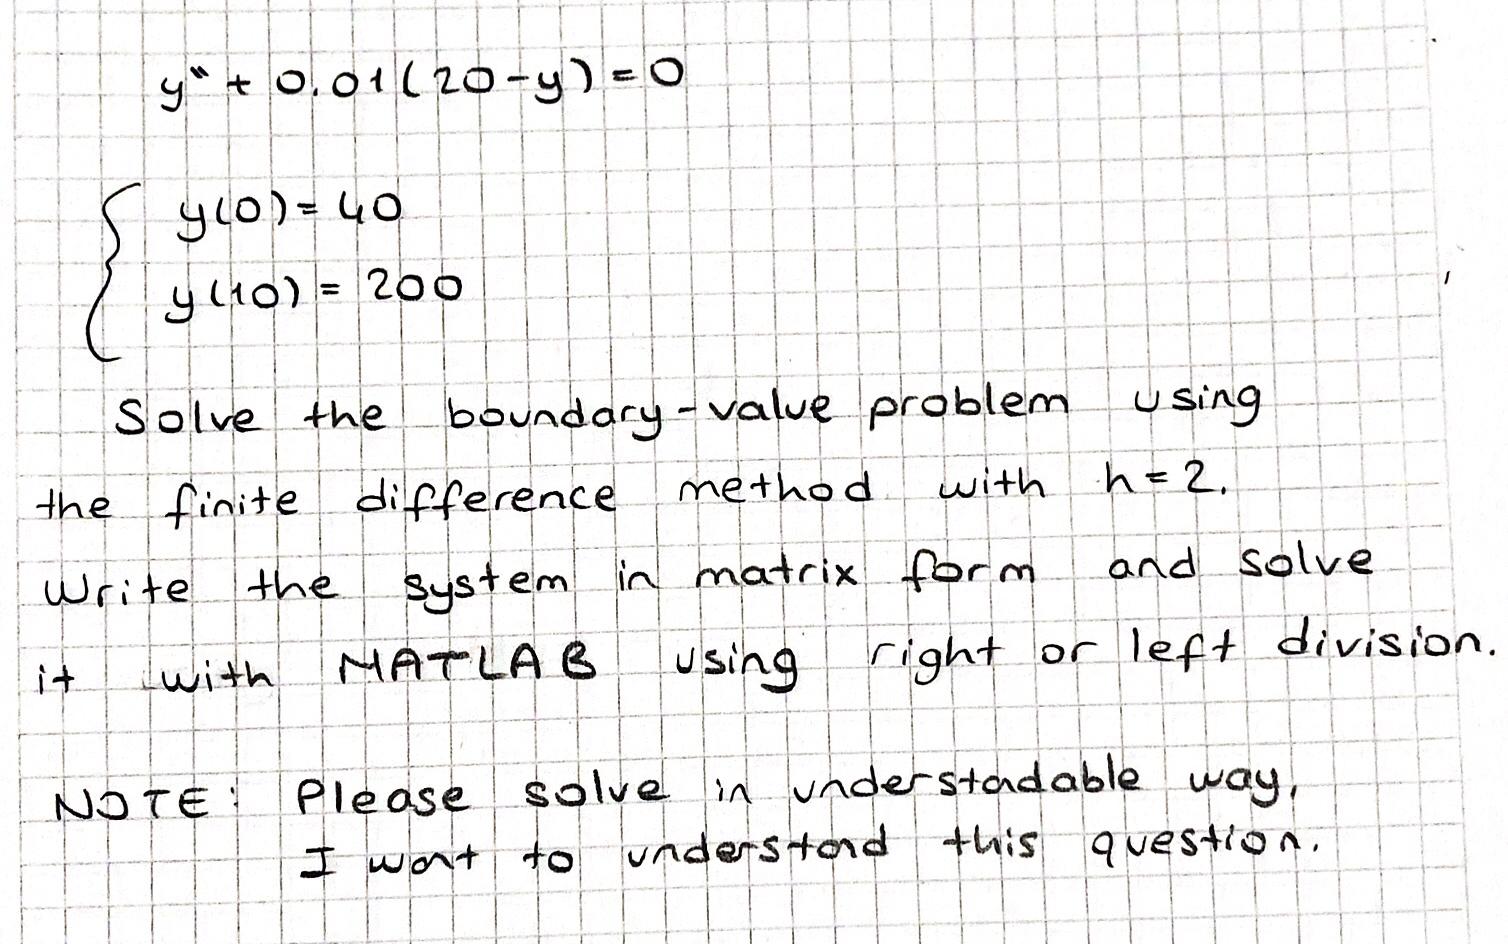 y" + 0.01(20-y) = 0
y(0) = 40
y(10) = 200
Solve the boundary-value problem using
the finite difference method with h = 2.
Write the system in matrix form and solve
it with MATLAB using right or left division.
NOTE: Please solve in understadable way,
I want to understand this question.